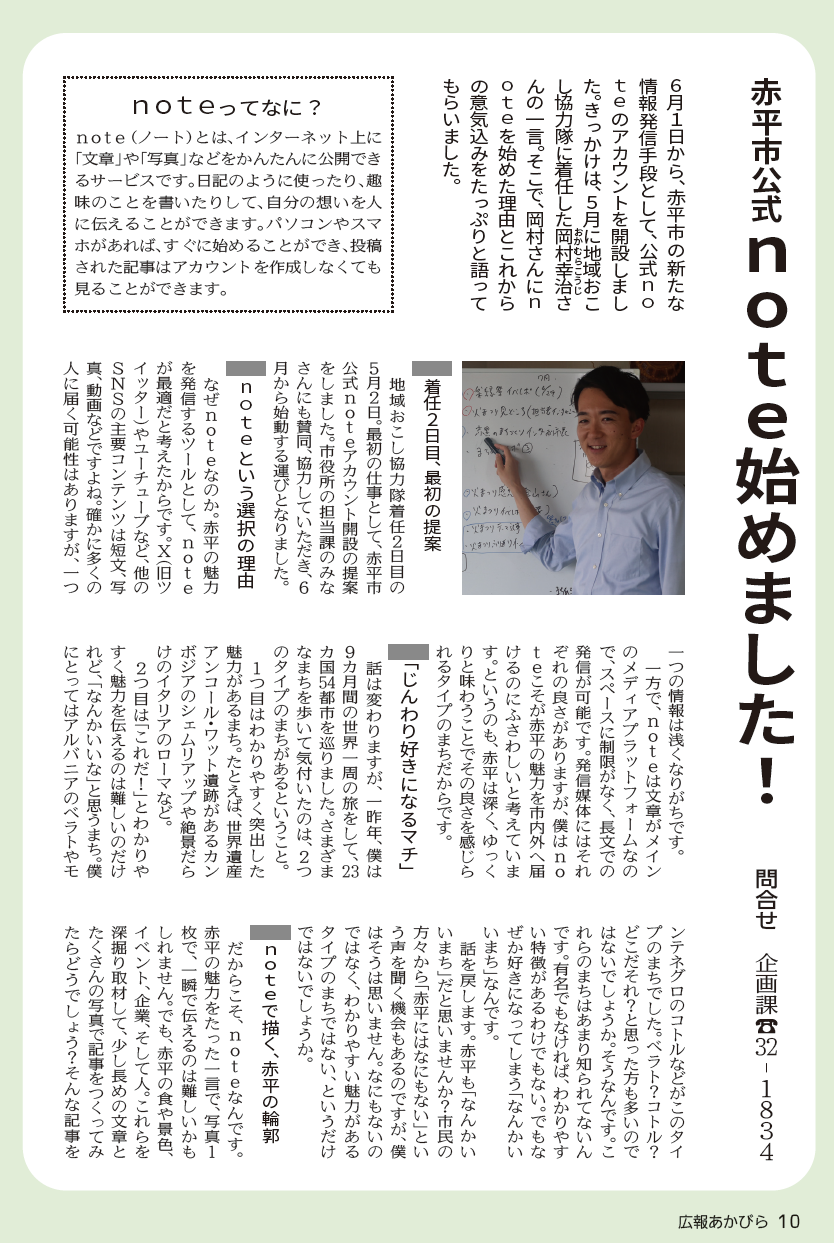 赤平市公式note始めました！
問合せ　企画課☎32－1834
６月１日から、赤平市の新たな
情報発信手段として、公式ｎｏ
ｔｅのアカウントを開設しまし
た。きっかけは、５月に地域おこ
し協力隊に着任した岡村幸治さ
おかむらこうじ
んの一言。そこで、岡村さんにｎ
ｏｔｅを始めた理由とこれから
の意気込みをたっぷりと語って
もらいました。
ｎｏｔｅってなに？
ｎｏｔｅ（ノート）とは、インターネット上に
「文章」や「写真」などをかんたんに公開でき
るサービスです。日記のように使ったり、趣
味のことを書いたりして、自分の想いを人
に伝えることができます。パソコンやスマ
ホがあれば、すぐに始めることができ、投稿
された記事はアカウントを作成しなくても
見ることができます。
着任２日目、最初の提案
地域おこし協力隊着任２日目の
５月２日。最初の仕事として、赤平市
公式ｎｏｔｅアカウント開設の提案
をしました。市役所の担当課のみな
さんにも賛同、協力していただき、６
月から始動する運びとなりました。
ｎｏｔｅという選択の理由
なぜｎｏｔｅなのか。赤平の魅力
を発信するツールとして、ｎｏｔｅ
が最適だと考えたからです。Ｘ（旧ツ
イッター）やユーチューブなど、他の
ＳＮＳの主要コンテンツは短文、写
真、動画などですよね。確かに多くの
人に届く可能性はありますが、一つ
一つの情報は浅くなりがちです。
一方で、ｎｏｔｅは文章がメイン
のメディアプラットフォームなの
で、スペースに制限がなく、長文での
発信が可能です。発信媒体にはそれ
ぞれの良さがありますが、僕はｎｏ
ｔｅこそが赤平の魅力を市内外へ届
けるのにふさわしいと考えていま
す。というのも、赤平は深く、ゆっく
りと味わうことでその良さを感じら
れるタイプのまちだからです。
「じんわり好きになるマチ」
話は変わりますが、一昨年、僕は
９カ月間の世界一周の旅をして、23
カ国54都市を巡りました。さまざま
なまちを歩いて気付いたのは、２つ
のタイプのまちがあるということ。
１つ目はわかりやすく突出した
魅力があるまち。たとえば、世界遺産
アンコール・ワット遺跡があるカン
ボジアのシェムリアップや絶景だら
けのイタリアのローマなど。
２つ目は「これだ！」とわかりや
すく魅力を伝えるのは難しいのだけ
れど、「なんかいいな」と思うまち。僕
にとってはアルバニアのベラトやモ
ンテネグロのコトルなどがこのタイ
プのまちでした。ベラト？コトル？
どこだそれ？と思った方も多いので
はないでしょうか。そうなんです。こ
れらのまちはあまり知られてないん
です。有名でもなければ、わかりやす
い特徴があるわけでもない。でもな
ぜか好きになってしまう「なんかい
いまち」なんです。
話を戻します。赤平も「なんかい
いまち」だと思いませんか？市民の
方々から「赤平にはなにもない」とい
う声を聞く機会もあるのですが、僕
はそうは思いません。なにもないの
ではなく、わかりやすい魅力がある
タイプのまちではない、というだけ
ではないでしょうか。
ｎｏｔｅで描く、赤平の輪郭
だからこそ、ｎｏｔｅなんです。
赤平の魅力をたった一言で、写真１
枚で、一瞬で伝えるのは難しいかも
しれません。でも、赤平の食や景色、
イベント、企業、そして人。これらを
深掘り取材して、少し長めの文章と
たくさんの写真で記事をつくってみ
たらどうでしょう？そんな記事を
広報あかびら 10